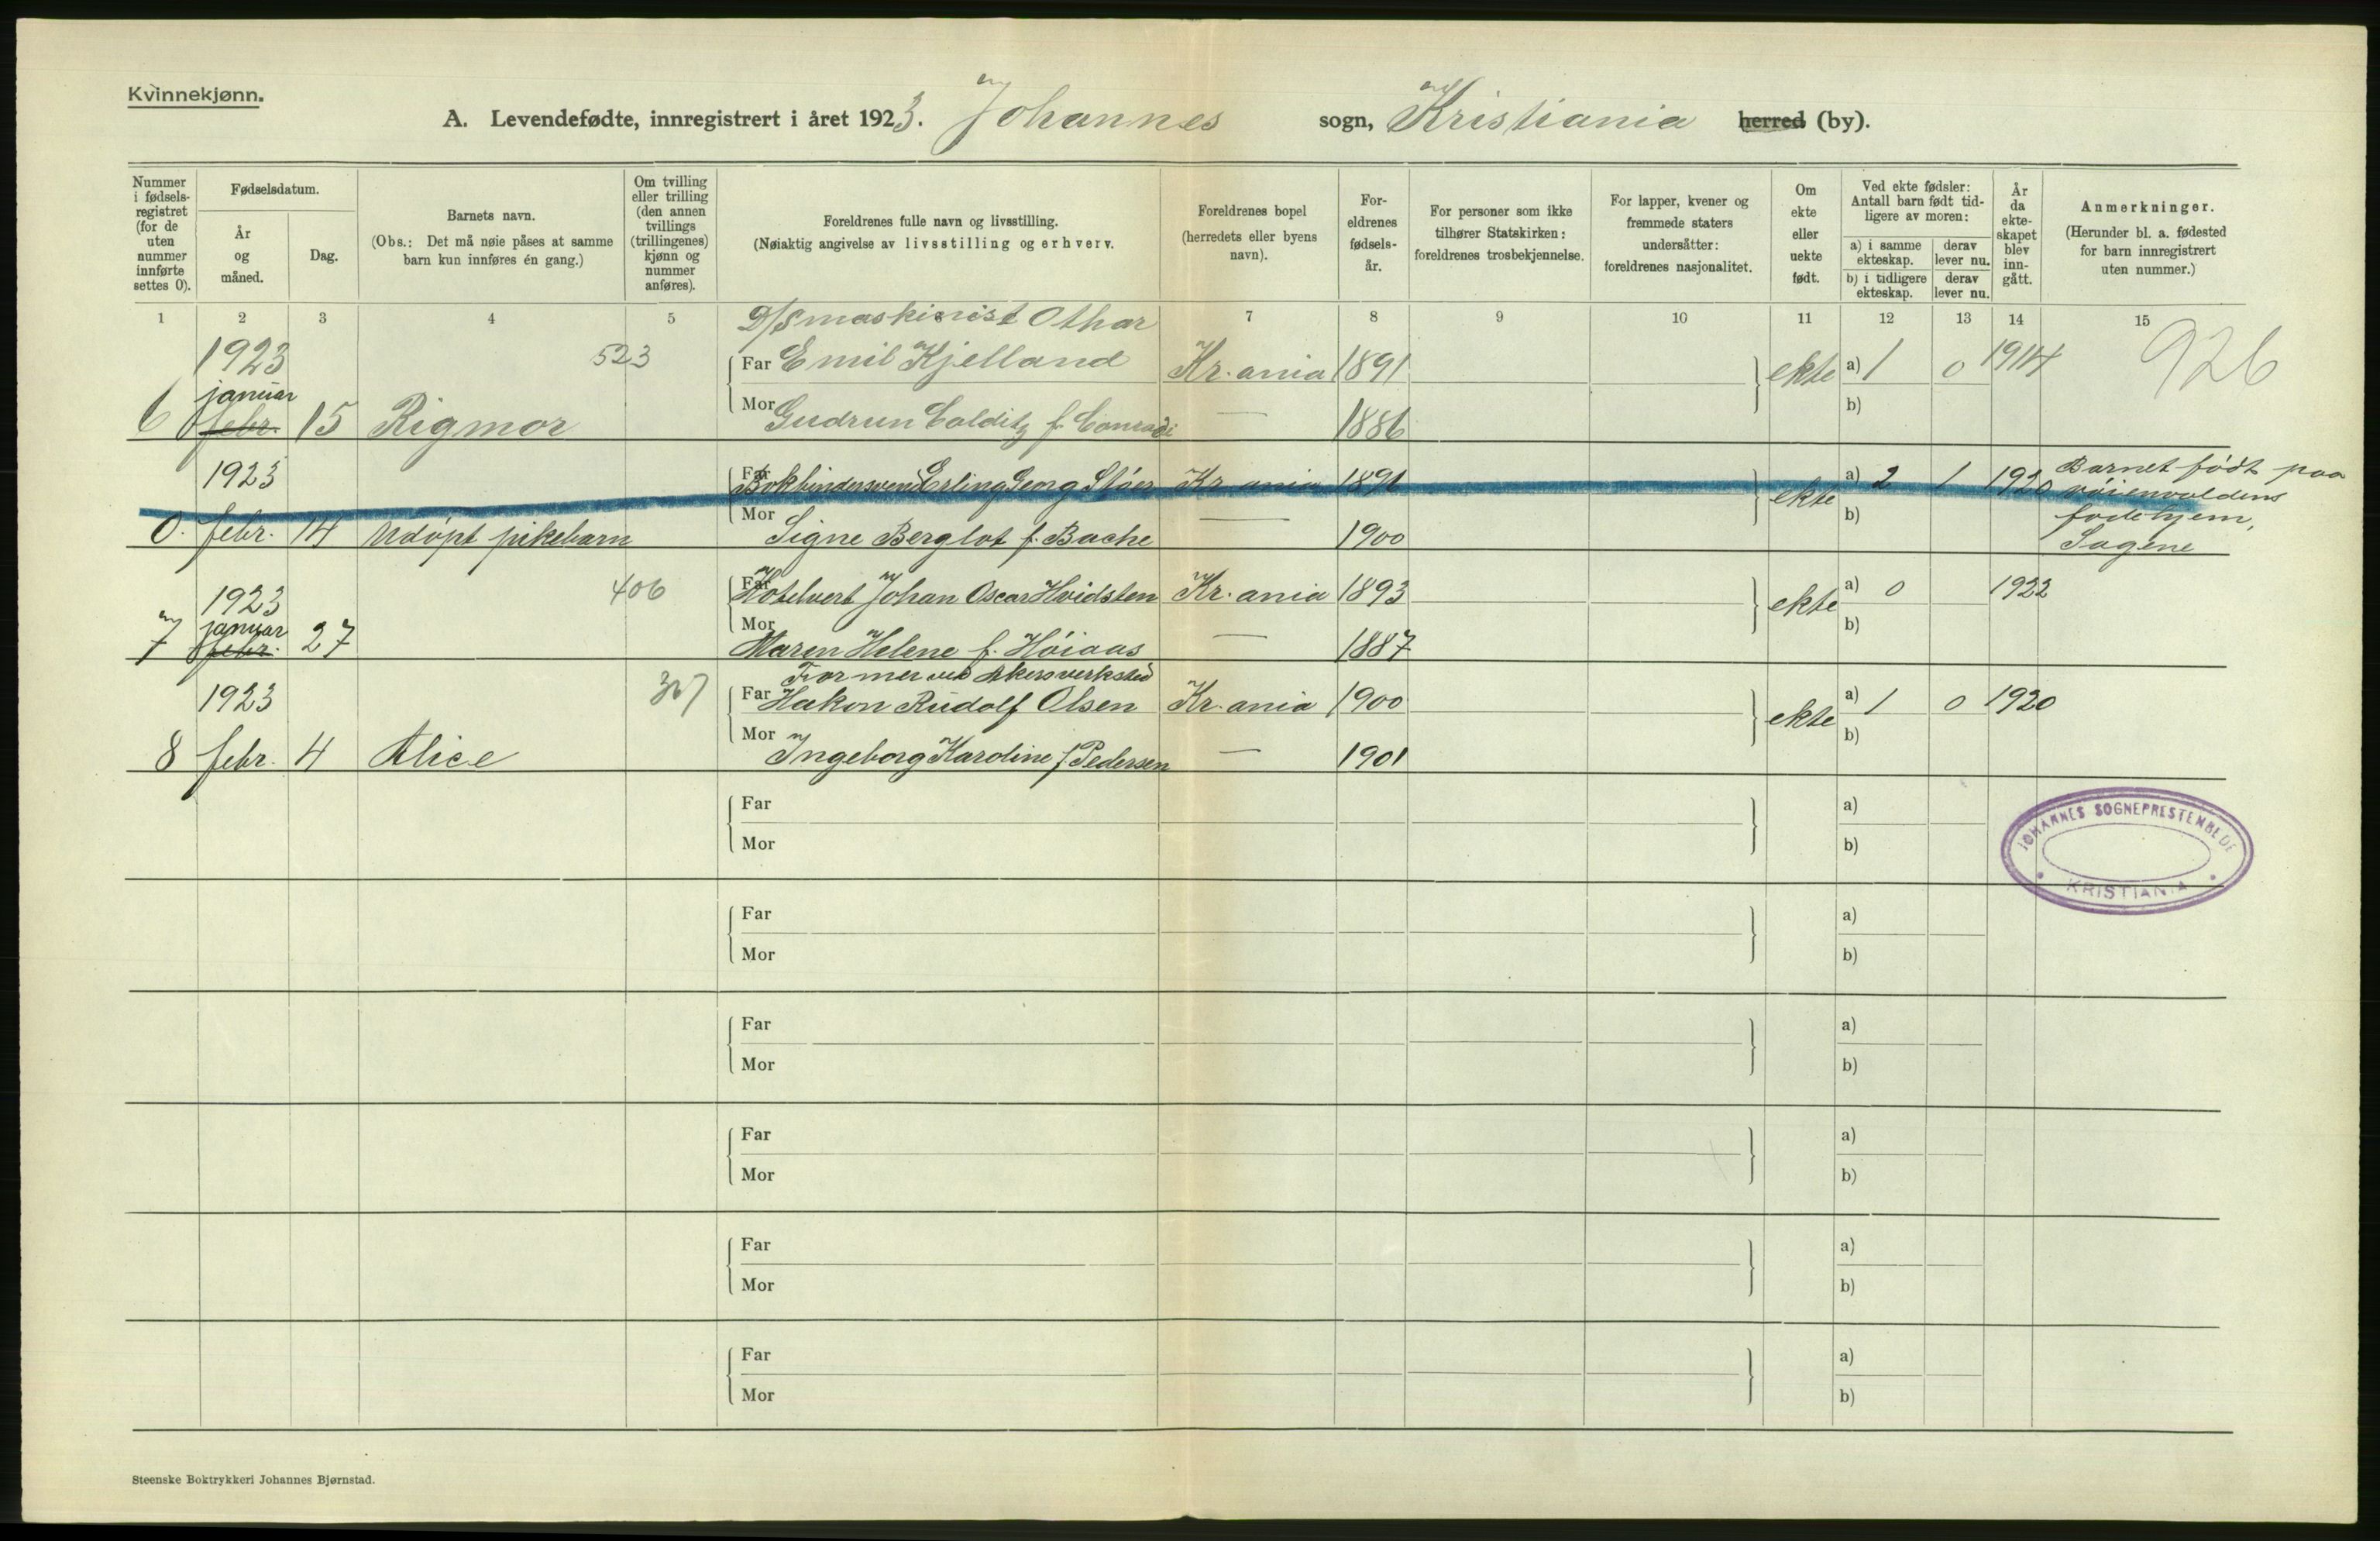 Kvinnekjønn.
A. Levendefødte, innregistrert i året 1923. Johannes sogn, Kristiania herred (by).
Nummer i fødsels-registret (for de uten nummer innførte settes 0).
Fødselsdatum.
År og måned.
Dag.
Barnets navn.
(Obs.: Det må nøie påses at samme barn kun innføres én gang.)
Om tvilling eller trilling (den annen tvillings (trillingenes) kjønn og nummer anføres).
Foreldrenes fulle navn og livsstilling.
(Nøiaktig angivelse av livsstilling og erhverv.
Foreldrenes bopel (herredets eller byens navn).
For-eldrenes fødsels-år.
For personer som ikke tilhører Statskirken: foreldrenes trosbekjennelse.
For lapper, kvener og fremmede staters undersåtter: foreldrenes nasjonalitet.
Om ekte eller uekte født.
Ved ekte fødsler: Antall barn født tid-ligere av moren:
a) i samme ekteskap.
derav lever nu.
b) i tidligere ekteskap.
derav lever nu.
År da ekte-skapet blev inn-gått.
Anmerkninger.
(Herunder bl. a. fødested for barn innregistrert uten nummer.)
1 2 3 4 5 7 8 9 10 11 12 13 14 15
D/S maskinist Othar
1923 523 Far Emil Kjelland Kr.ania 1891 ekte a) 1 0 1914 926
januar
6 febr. 15 Rigmor Mor Gudrun Colditz f. Conradi — 1886 b)
1923 Far Bokbindersvend Erling Georg Støer Kr.ania 1891 ekte a) 2 1 1920 Barnet født paa
0. febr. 14 Udøpt pikebarn Mor Signe Berglot f. Bache — 1900 b)
fødehjem,
Sagene
1923 406 Far Hotelvert Johan Oscar Hvidsten Kr.ania 1893 ekte a) 0 1922
januar
7 febr. 27 Mor Maren Helene f. Høiaas — 1887 b)
Former ved Akersverksted
1923 Far Hakon Rudolf Olsen Kr.ania 1900 ekte a) 1 0 1920
8 febr. 4 Alice Mor Ingeborg Karoline f. Pedersen — 1901 b)
Far a)
Mor b)
JOHANNES SOGNEPRESTEMBEDE
KRISTIANIA
Far a)
Mor b)
Far a)
Mor b)
Far a)
Mor b)
Far a)
Mor b)
Far a)
Mor b)
Steenske Boktrykkeri Johannes Bjørnstad.